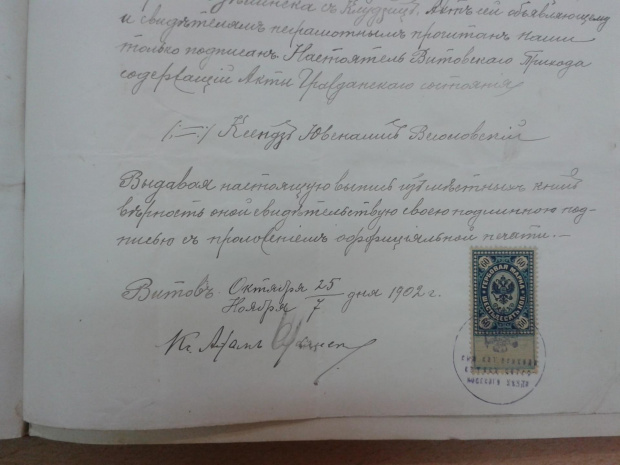 съ Кудлицъ. Актъ сей объявляющему
и свидѣтелямъ неграмотнымъ прочитанъ нами
только подписанъ. Настоятель Витовскаго Прихода
содержащій Акты Гражданскаго состоянія
(:=:) Ксендзъ Ювеналій
Выдавая настоящую выпись изъ мѣстныхъ книгъ
вѣрность оной свидѣтельствую своею подлинною под-
писью съ приложеніемъ оффиціальной печати. —
Витовъ. Октября 25 дня 1902 г.
Ноября 7
Кс. Адамъ
60 60
ГЕРБОВАЯ МАРКА
60 60